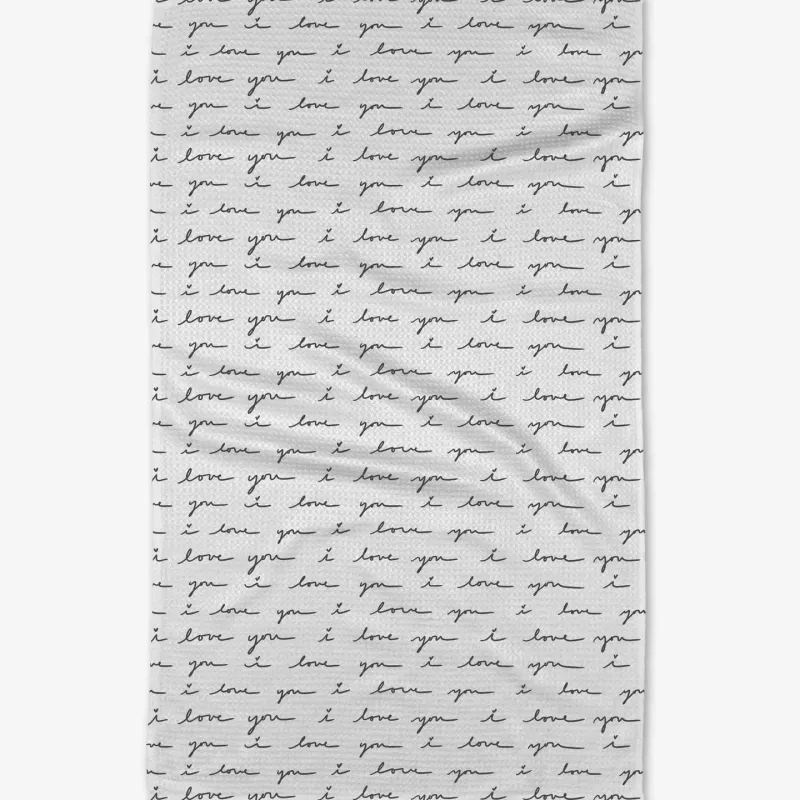 you i love you i love you i
i love you i love you i love
i love you i love you i love you
you i love you i love you i
i love you i love you i love
i love you i love you i love you
you i love you i love you i
i love you i love you i love
i love you i love you i love you
you i love you i love you i
i love you i love you i love
i love you i love you i love you
you i love you i love you i
i love you i love you i love
i love you i love you i love you
you i love you i love you i
i love you i love you i love
i love you i love you i love you
you i love you i love you i
i love you i love you i love
i love you i love you i love you
you i love you i love you i
i love you i love you i love
i love you i love you i love you
you i love you i love you i
i love you i love you i love
i love you i love you i love you
you i love you i love you i
i love you i love you i love
i love you i love you i love you